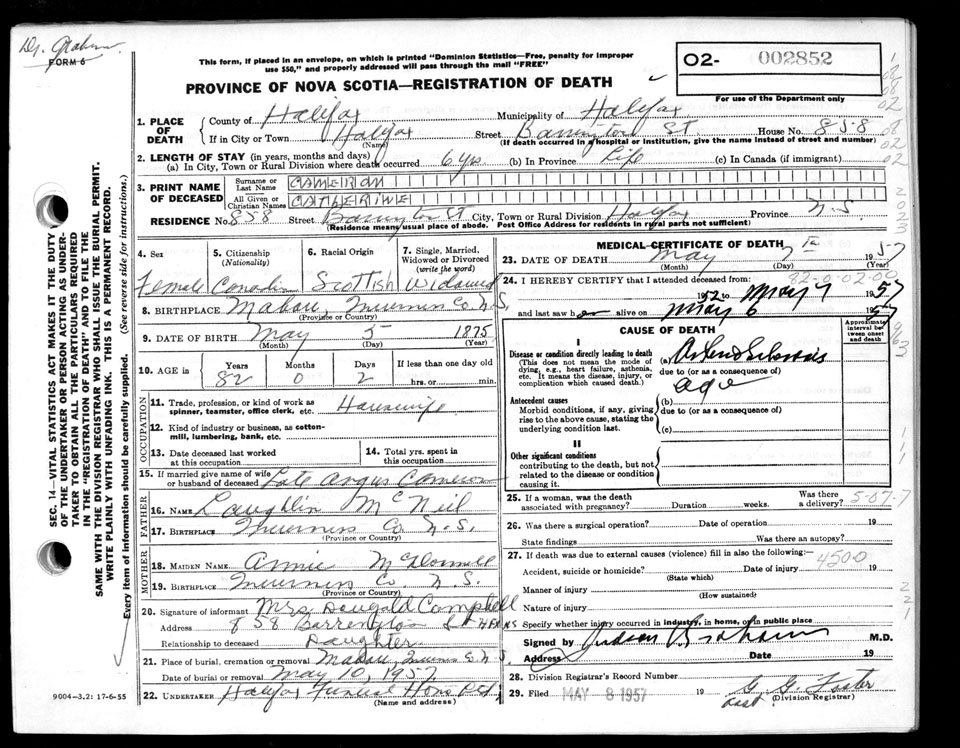 Dr. Graham
FORM 6
This form, if placed in an envelope, on which is printed "Dominion Statistics—Free, penalty for improper
use $50," and properly addressed will pass through the mail "FREE"
PROVINCE OF NOVA SCOTIA—REGISTRATION OF DEATH
O2- 002852
For use of the Department only
1. PLACE OF DEATH
County of Halifax Municipality of Halifax
If in City or Town Halifax (Name) Street Barrington St House No. 858
(If death occurred in a hospital or institution, give the name instead of street and number)
2. LENGTH OF STAY (in years, months and days)
(a) In City, Town or Rural Division where death occurred 6 yrs (b) In Province Life (c) In Canada (if immigrant)
3. PRINT NAME OF DECEASED
Surname or Last Name CAMERON
All Given or Christian Names CATHERINE
RESIDENCE No. 858 Street Barrington St City, Town or Rural Division Halifax Province N.S.
(Residence means usual place of abode. Post Office Address for residents in rural parts not sufficient)
4. Sex
Female
5. Citizenship (Nationality)
Canadian
6. Racial Origin
Scottish
7. Single, Married, Widowed or Divorced (write the word)
Widowed
8. BIRTHPLACE Mabou, Inverness Co. N.S.
(Province or Country)
9. DATE OF BIRTH May 5 1875
(Month) (Day) (Year)
10. AGE in Years Months Days If less than one day
82 0 2 hrs. or min.
OCCUPATION
11. Trade, profession, or kind of work as spinner, teamster, office clerk, etc. Housewife
12. Kind of industry or business, as cotton-mill, lumbering, bank, etc.
13. Date deceased last worked at this occupation
14. Total yrs. spent in this occupation
15. If married give name of wife or husband of deceased Late Angus Cameron
FATHER
16. NAME Laughlin McNeil
17. BIRTHPLACE Inverness Co. N.S.
(Province or Country)
MOTHER
18. MAIDEN NAME Annie McDonnell
19. BIRTHPLACE Inverness Co. N.S.
(Province or Country)
20. Signature of informant Mrs. Dougald Campbell
Address 858 Barrington St Hfx NS
Relationship to deceased Daughter
21. Place of burial, cremation or removal Mabou, Inverness Co. N.S.
Date of burial or removal May 10, 1957
22. UNDERTAKER Halifax Funeral Home
(Name and address)
MEDICAL CERTIFICATE OF DEATH
23. DATE OF DEATH May 7th 1957
(Month) (Day) (Year)
24. I HEREBY CERTIFY that I attended deceased from:
82-0-02-00
1952 to May 7 1957
and last saw her alive on May 6 1957
CAUSE OF DEATH
Approximate interval between onset and death
I
Disease or condition directly leading to death
(This does not mean the mode of dying, e.g., heart failure, asthenia, etc. It means the disease, injury, or complication which caused death.)
(a) Arteriosclerosis
due to (or as a consequence of)
age
Antecedent causes
Morbid conditions, if any, giving rise to the above cause, stating the underlying condition last.
(b)
due to (or as a consequence of)
(c)
II
Other significant conditions
contributing to the death, but not related to the disease or condition causing it.
25. If a woman, was the death associated with pregnancy? Duration weeks. Was there a delivery?
26. Was there a surgical operation? Date of operation 19
State findings Was there an autopsy?
27. If death was due to external causes (violence) fill in also the following:— 4500
Accident, suicide or homicide? (State which) Date of injury 19
Manner of injury
(How sustained)
Nature of injury
Specify whether injury occurred in industry, in home, or in public place
Signed by Graham M.D.
Address Date 19
28. Division Registrar's Record Number
29. Filed MAY 8 1957 19 G G Foster
(Division Registrar)
9004-3.2: 17-6-55
SEC. 14—VITAL STATISTICS ACT MAKES IT THE DUTY
OF THE UNDERTAKER OR PERSON ACTING AS UNDER-
TAKER TO OBTAIN ALL THE PARTICULARS REQUIRED
IN THE "REGISTRATION OF DEATH" AND TO FILE THE
SAME WITH THE DIVISION REGISTRAR WHO SHALL ISSUE THE BURIAL PERMIT.
WRITE PLAINLY WITH UNFADING INK. THIS IS A PERMANENT RECORD.
Every item of information should be carefully supplied. (See reverse side for instructions.)